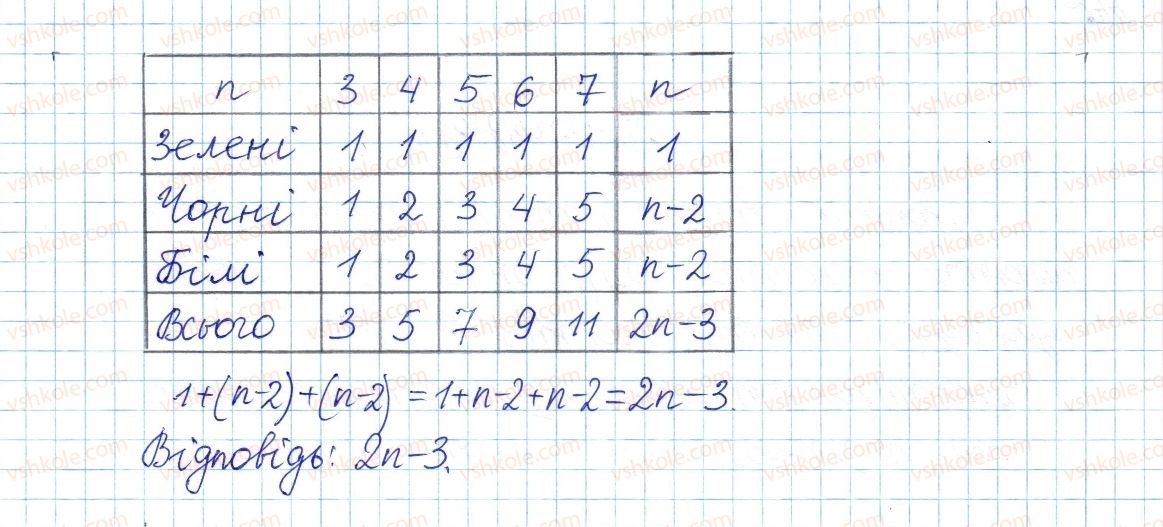 n 3 4 5 6 7 n
Зелені 1 1 1 1 1 1
Чорні 1 2 3 4 5 n-2
Білі 1 2 3 4 5 n-2
Всього 3 5 7 9 11 2n-3
1+(n-2)+(n-2) = 1+n-2+n-2=2n-3.
Відповідь: 2n-3.